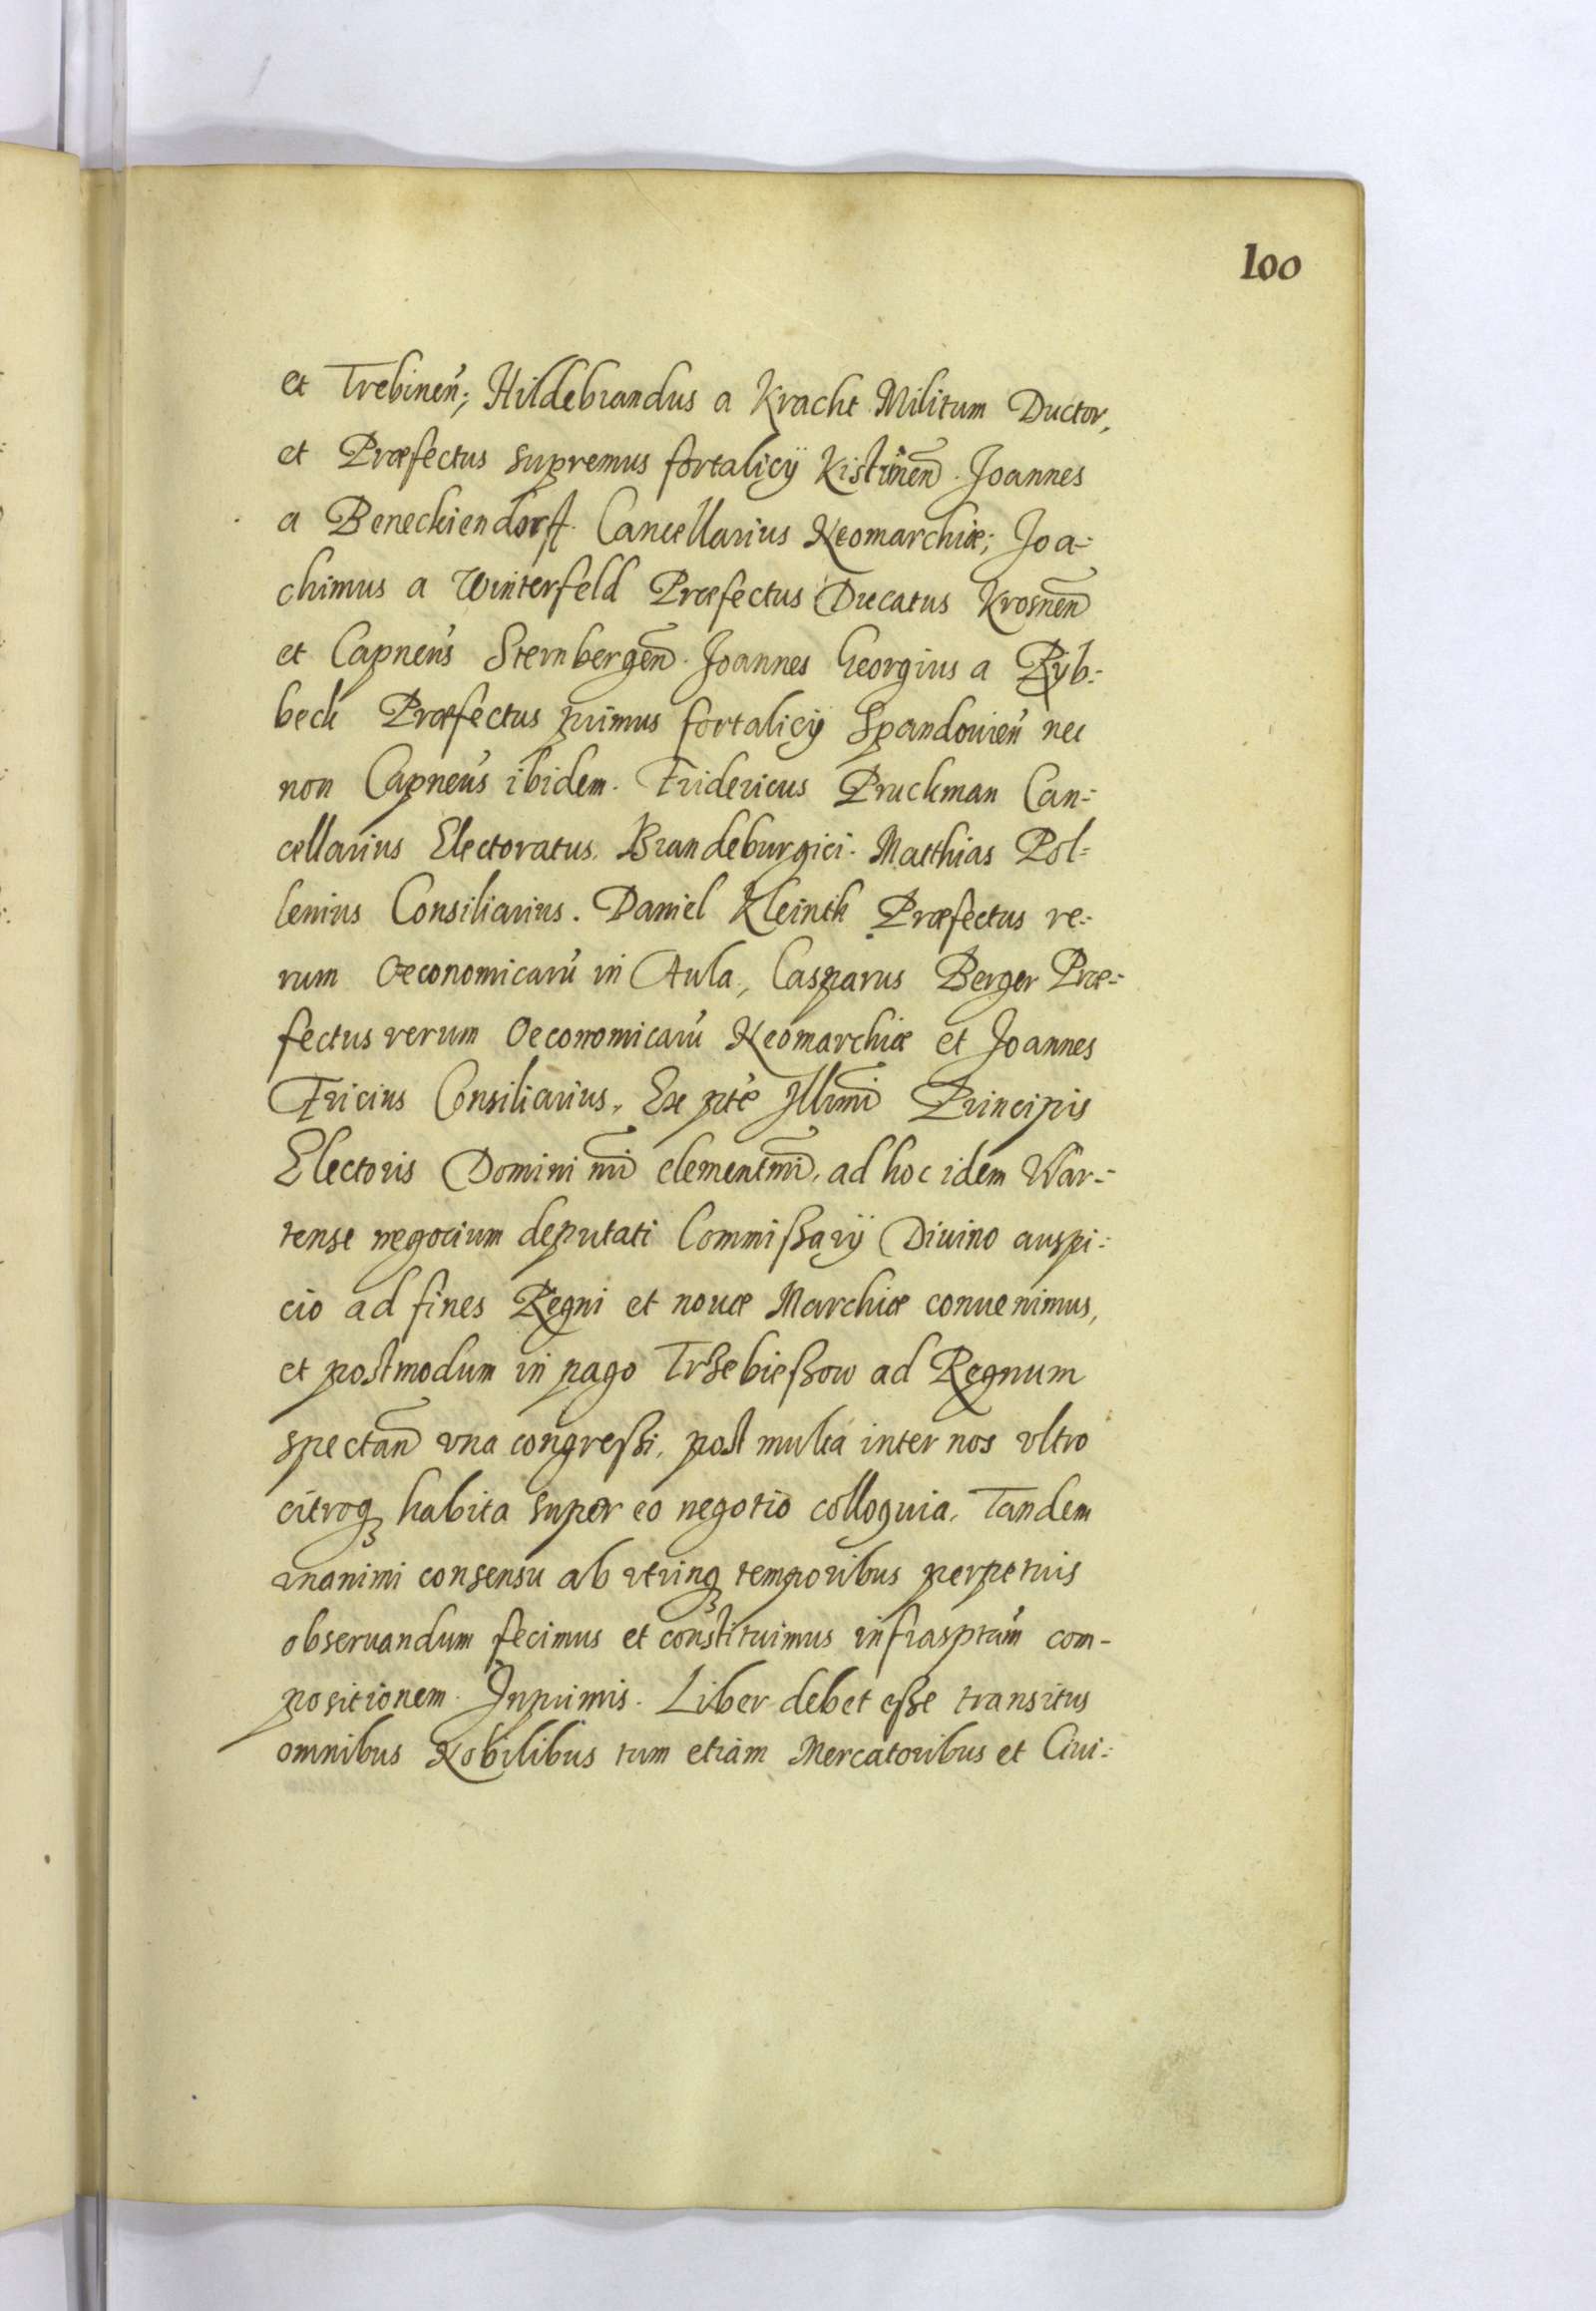 100
et Trebineń; Hildebrandus a Kracht Militum Ductor,
et Præfectus supremus fortalicÿ Kistrinen̄. Joannes
a Beneckiendorff. Cancellarius Neomarchiæ; Joa-
chimus a Winterfeld Præfectus Ducatus Krosnen̄
et Capneús Sternbergen̄. Joannes Georgius a Ryb-
beck Præfectus primus fortalicÿ Spandouień nec
non Capneús ibidem. Fridericus Pruckman Can-
cellarius Electoratus Brandeburgici. Matthias Pol-
lenius Consiliarius. Daniel Kleinth Præfectus re-
rum Oeconomicarú in Aula, Casparus Berger Præ-
fectus rerum Oeconomicarú Neomarchiæ et Joannes
Fricius Consiliarius, Ex pte Illmi Principis
Electoris Domini nri clementmi, ad hoc idem War-
tense negocium deputati Commißarÿ Diuino auspi-
cio ad fines Regni et nouæ Marchiæ conuenimus,
et postmodum in pago Trzebießow ad Regnum
spectan̄ vna congreßi, post multa inter nos vltro
citroq habita super eo negotio colloquia, Tandem
vnanimi consensu ab vtrinq temporibus perpetuis
obseruandum fecimus et constituimus infrasptam com-
positionem. Inprimis. Liber debet eße transitus
omnibus Nobilibus tum etiam Mercatoribus et Ciui-